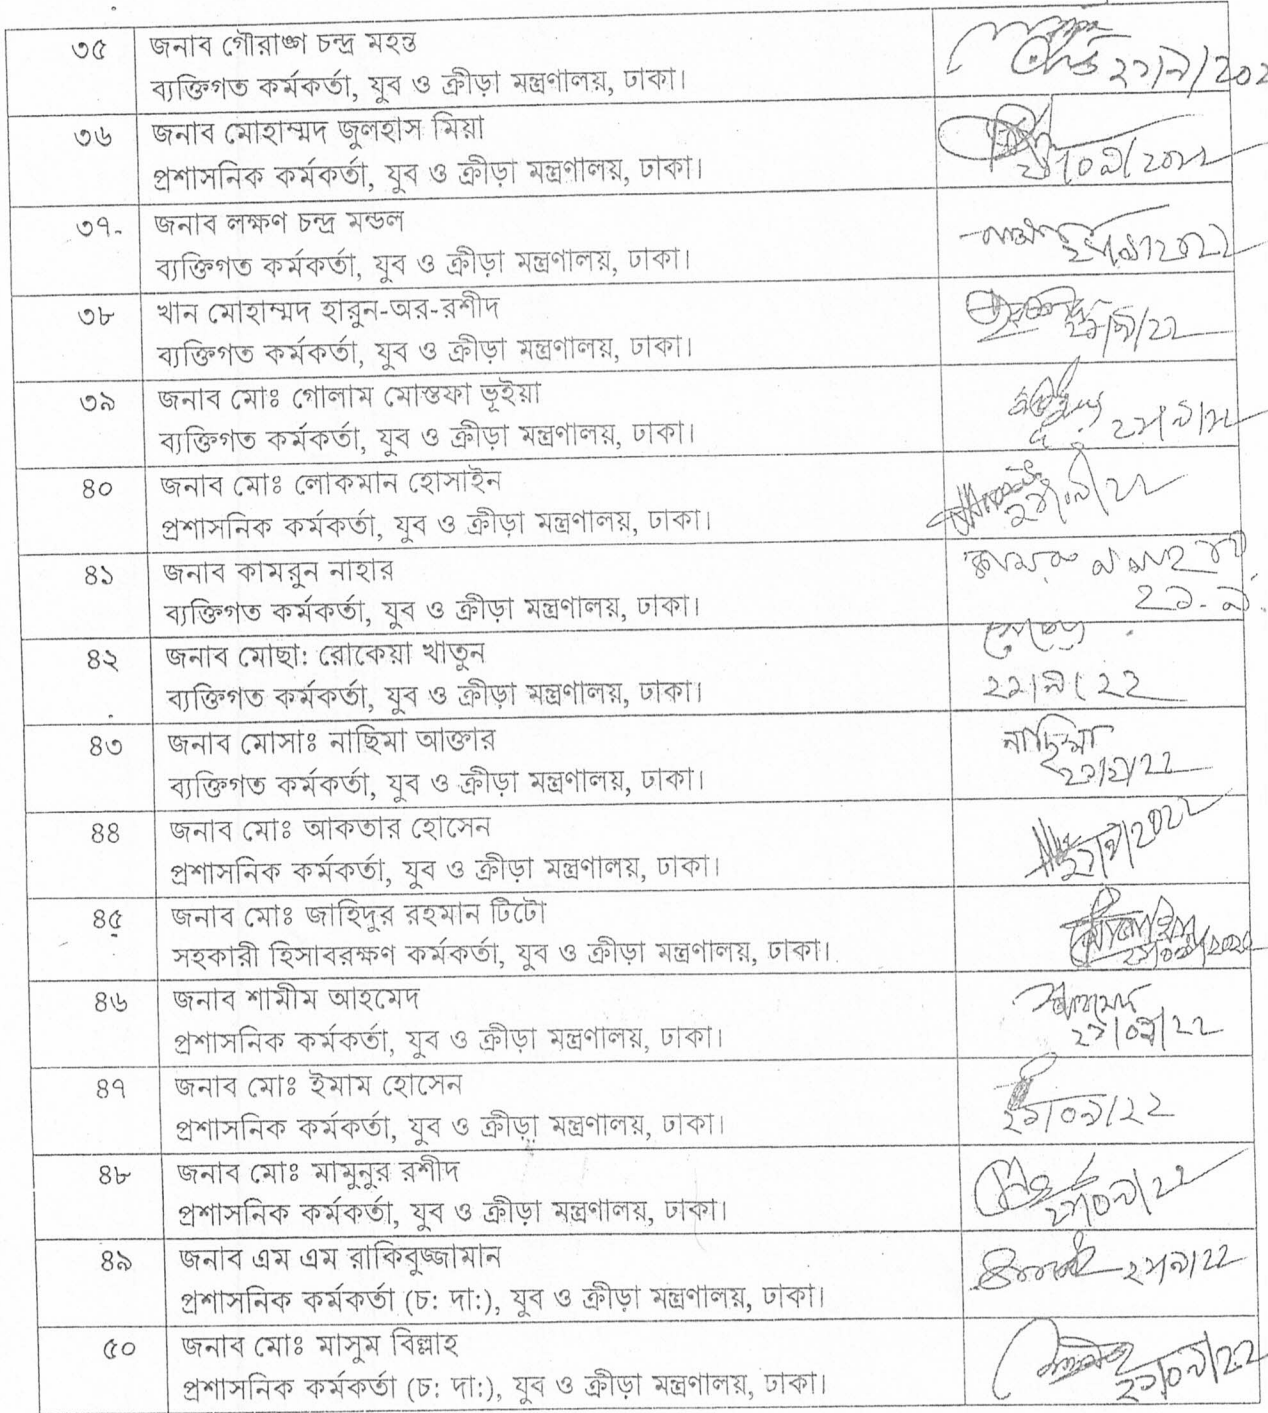 ৩৫ জনাব গৌরাঙ্গ চন্দ্র মহন্ত
ব্যক্তিগত কর্মকর্তা, যুব ও ক্রীড়া মন্ত্রণালয়, ঢাকা।
৩৬ জনাব মোহাম্মদ জুলহাস মিয়া
প্রশাসনিক কর্মকর্তা, যুব ও ক্রীড়া মন্ত্রণালয়, ঢাকা।
৩৭ জনাব লক্ষণ চন্দ্র মন্ডল
ব্যক্তিগত কর্মকর্তা, যুব ও ক্রীড়া মন্ত্রণালয়, ঢাকা।
৩৮ খান মোহাম্মদ হারুন-অর-রশীদ
ব্যক্তিগত কর্মকর্তা, যুব ও ক্রীড়া মন্ত্রণালয়, ঢাকা।
৩৯ জনাব মোঃ গোলাম মোস্তফা ভূইয়া
ব্যক্তিগত কর্মকর্তা, যুব ও ক্রীড়া মন্ত্রণালয়, ঢাকা।
৪০ জনাব মোঃ লোকমান হোসাইন
প্রশাসনিক কর্মকর্তা, যুব ও ক্রীড়া মন্ত্রণালয়, ঢাকা।
৪১ জনাব কামরুন নাহার
ব্যক্তিগত কর্মকর্তা, যুব ও ক্রীড়া মন্ত্রণালয়, ঢাকা।
২১.৯.
৪২ জনাব মোছা: রোকেয়া খাতুন
ব্যক্তিগত কর্মকর্তা, যুব ও ক্রীড়া মন্ত্রণালয়, ঢাকা। ২১/৯/২২
৪৩ জনাব মোসাঃ নাছিমা আক্তার নাছিমা
ব্যক্তিগত কর্মকর্তা, যুব ও ক্রীড়া মন্ত্রণালয়, ঢাকা। ২১/৯/২২
৪৪ জনাব মোঃ আকতার হোসেন
প্রশাসনিক কর্মকর্তা, যুব ও ক্রীড়া মন্ত্রণালয়, ঢাকা। ২১/৯/২০২২
৪৫ জনাব মোঃ জাহিদুর রহমান টিটো
সহকারী হিসাবরক্ষণ কর্মকর্তা, যুব ও ক্রীড়া মন্ত্রণালয়, ঢাকা।
৪৬ জনাব শামীম আহমেদ
প্রশাসনিক কর্মকর্তা, যুব ও ক্রীড়া মন্ত্রণালয়, ঢাকা। ২১/০৯/২২
৪৭ জনাব মোঃ ইমাম হোসেন
প্রশাসনিক কর্মকর্তা, যুব ও ক্রীড়া মন্ত্রণালয়, ঢাকা। ২১/০৯/২২
৪৮ জনাব মোঃ মামুনুর রশীদ
প্রশাসনিক কর্মকর্তা, যুব ও ক্রীড়া মন্ত্রণালয়, ঢাকা। ২১/০৯/২২
৪৯ জনাব এম এম রাকিবুজ্জামান ২১/৯/২২
প্রশাসনিক কর্মকর্তা (চ: দা:), যুব ও ক্রীড়া মন্ত্রণালয়, ঢাকা।
৫০ জনাব মোঃ মাসুম বিল্লাহ
প্রশাসনিক কর্মকর্তা (চ: দা:), যুব ও ক্রীড়া মন্ত্রণালয়, ঢাকা। ২১/০৯/২২